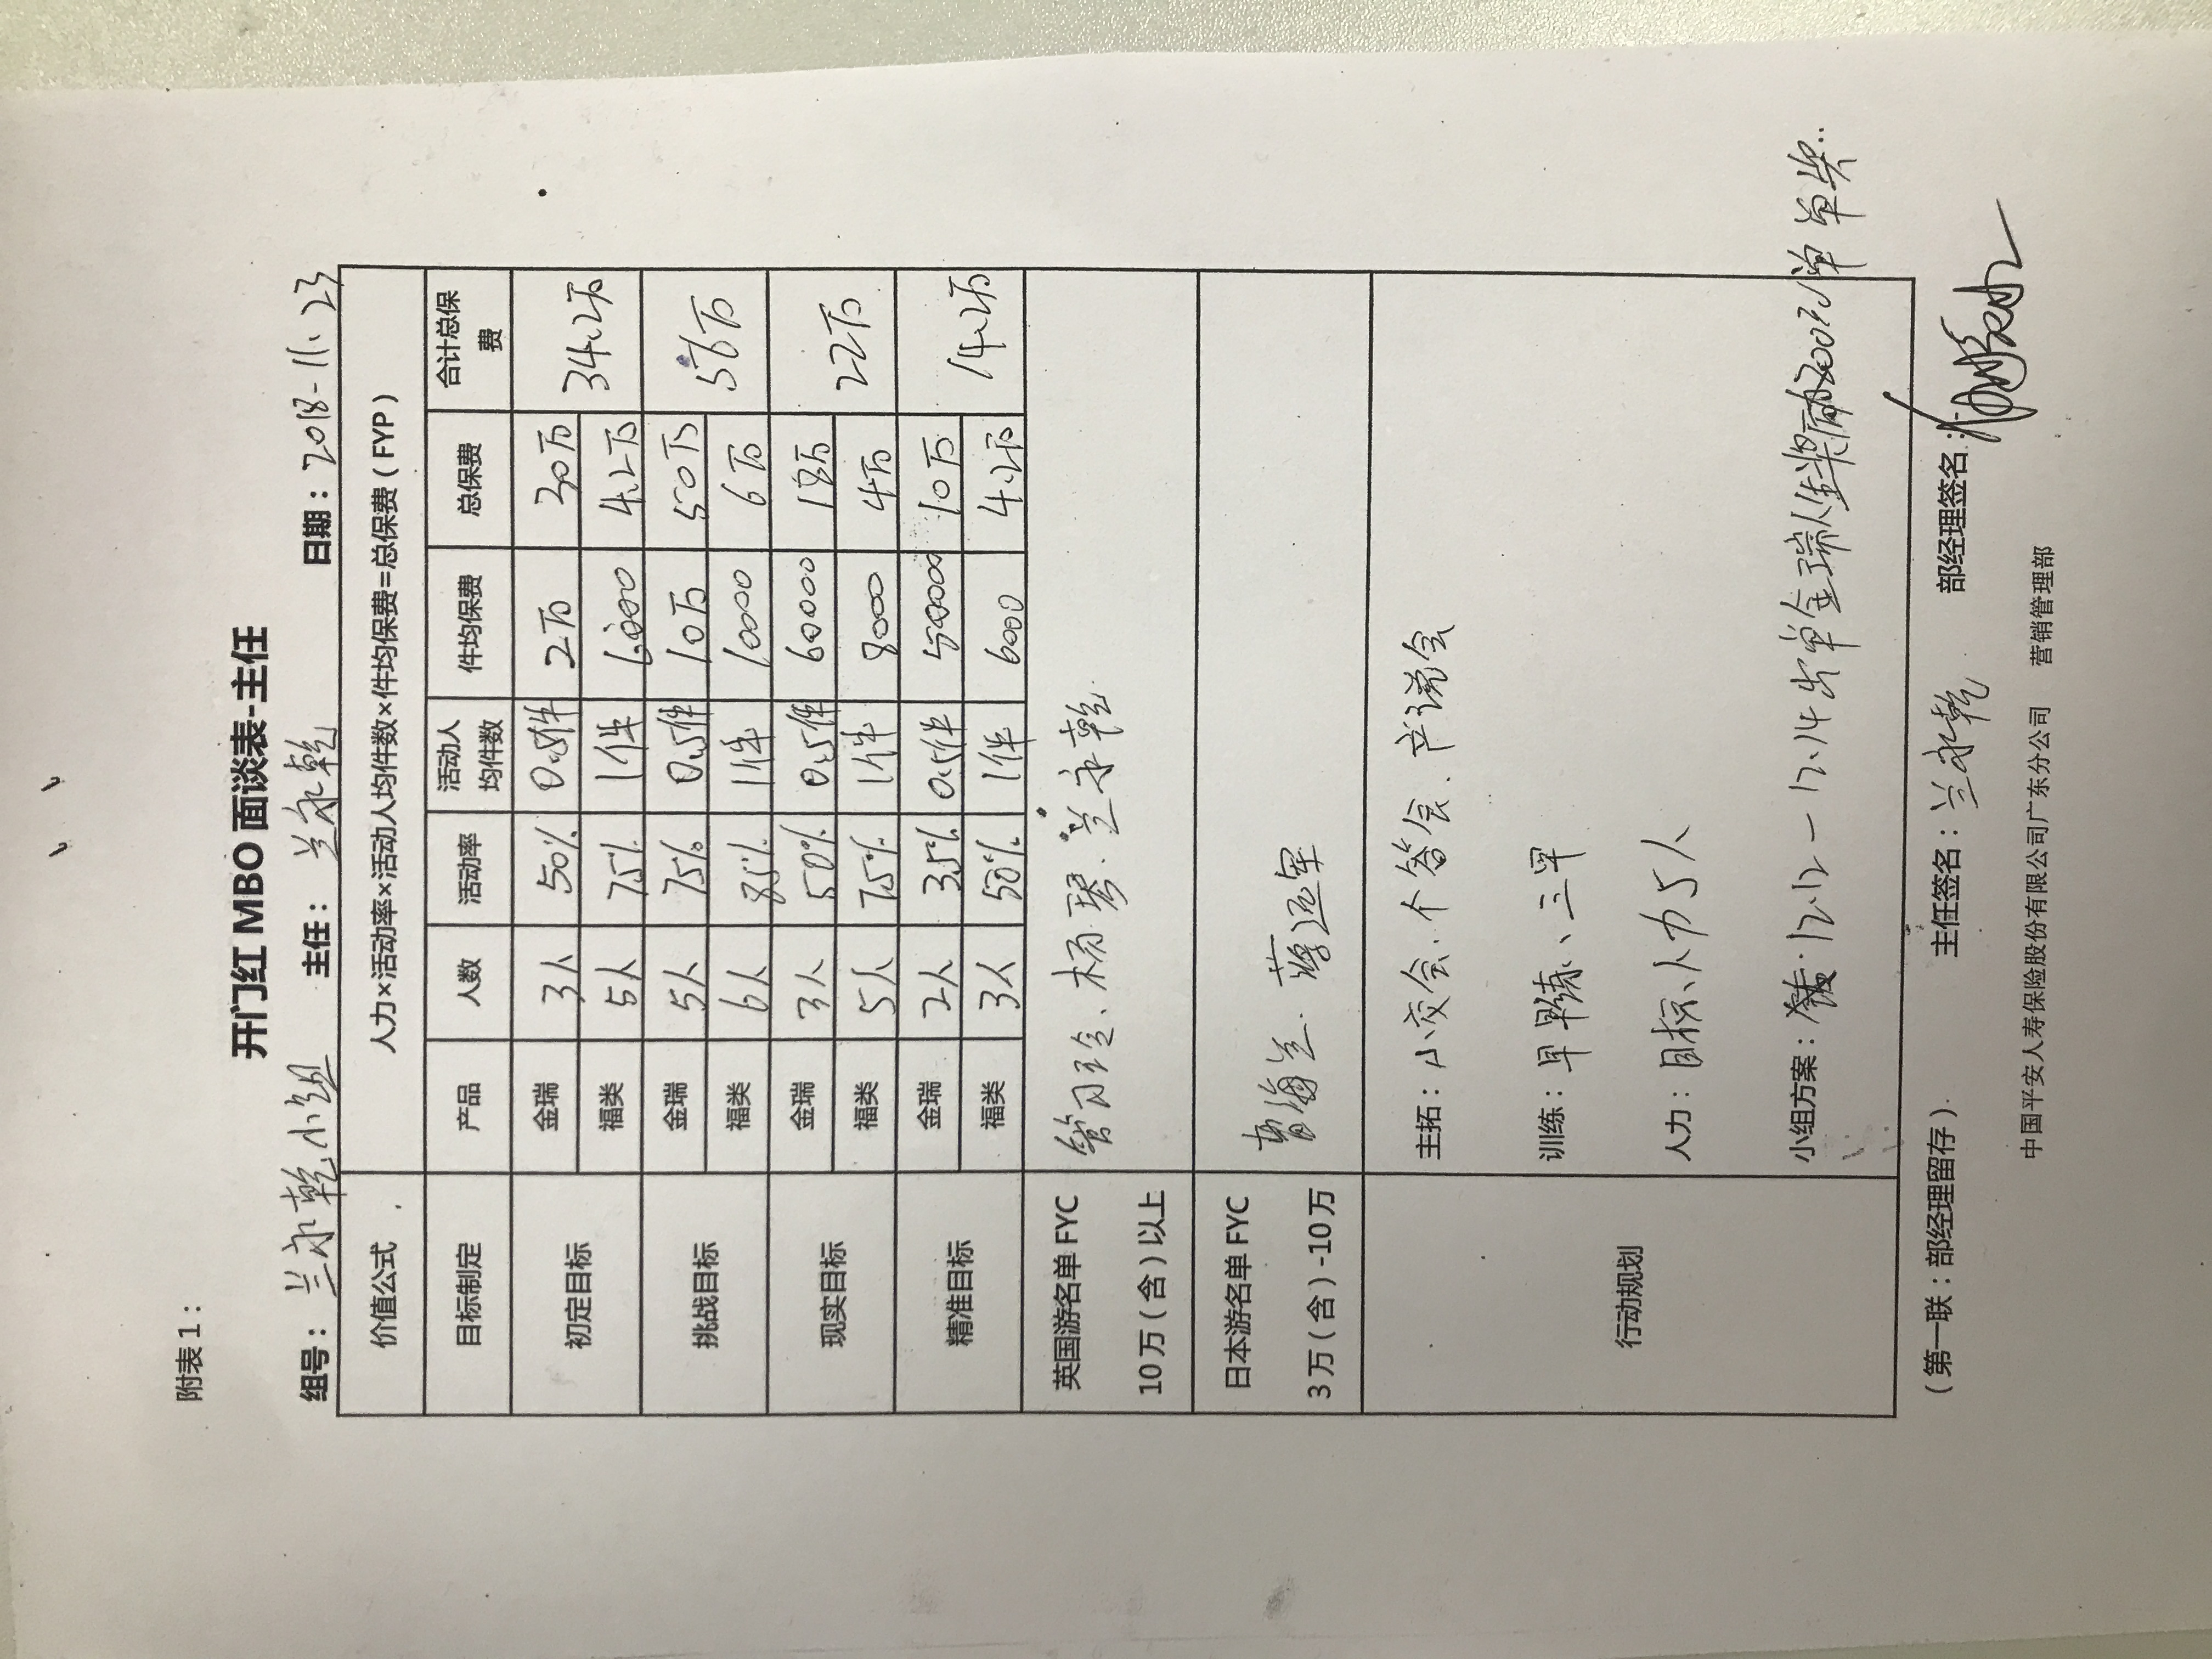 附表1：
开门红 MBO 面谈表-主任
组号：兰永乾小组 主任：兰永乾 日期：2018-11.23
价值公式 人力×活动率×活动人均件数×件均保费=总保费（FYP）
目标制定 产品 人数 活动率 活动人均件数 件均保费 总保费 合计总保费
初定目标 金瑞 3人 50% 2万 30万 34.2万
福类 5人 75% 1件 6000 4.2万
挑战目标 金瑞 5人 75% 0.5件 10万 50万 56万
福类 6人 85% 1件 10000 6万
现实目标 金瑞 3人 50% 0.5件 60000 18万 22万
福类 5人 75% 1件 8000 4万
精准目标 金瑞 2人 35% 0.5件 50000 10万 14.2万
福类 3人 50% 1件 6000 4.2万
英国游名单 FYC 10万（含）以上 杨琴、兰永乾
日本游名单 FYC 3万（含）-10万
行动规划
主拓：小交会、个答会、产说会
训练：早训练、三早
人力：目标人力5人
小组方案：12.12－12.14出单金瑞人生奖励200元/单 单奖..
（第一联：部经理留存） 主任签名：兰永乾 部经理签名：
中国平安人寿保险股份有限公司广东分公司 营销管理部